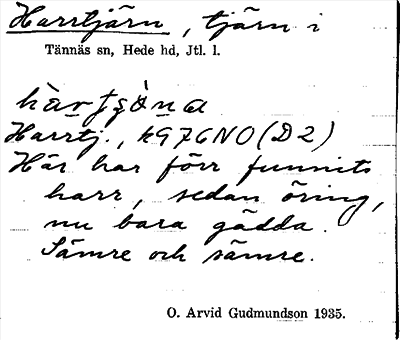 Harrtjärn, tjärn i
Tännäs sn, Hede hd, Jtl. l.
Harrtj., k976NO (D2)
Här har förr funnits
harr, sedan öring,
nu bara gädda.
Sämre och sämre.
O. Arvid Gudmundson 1935.